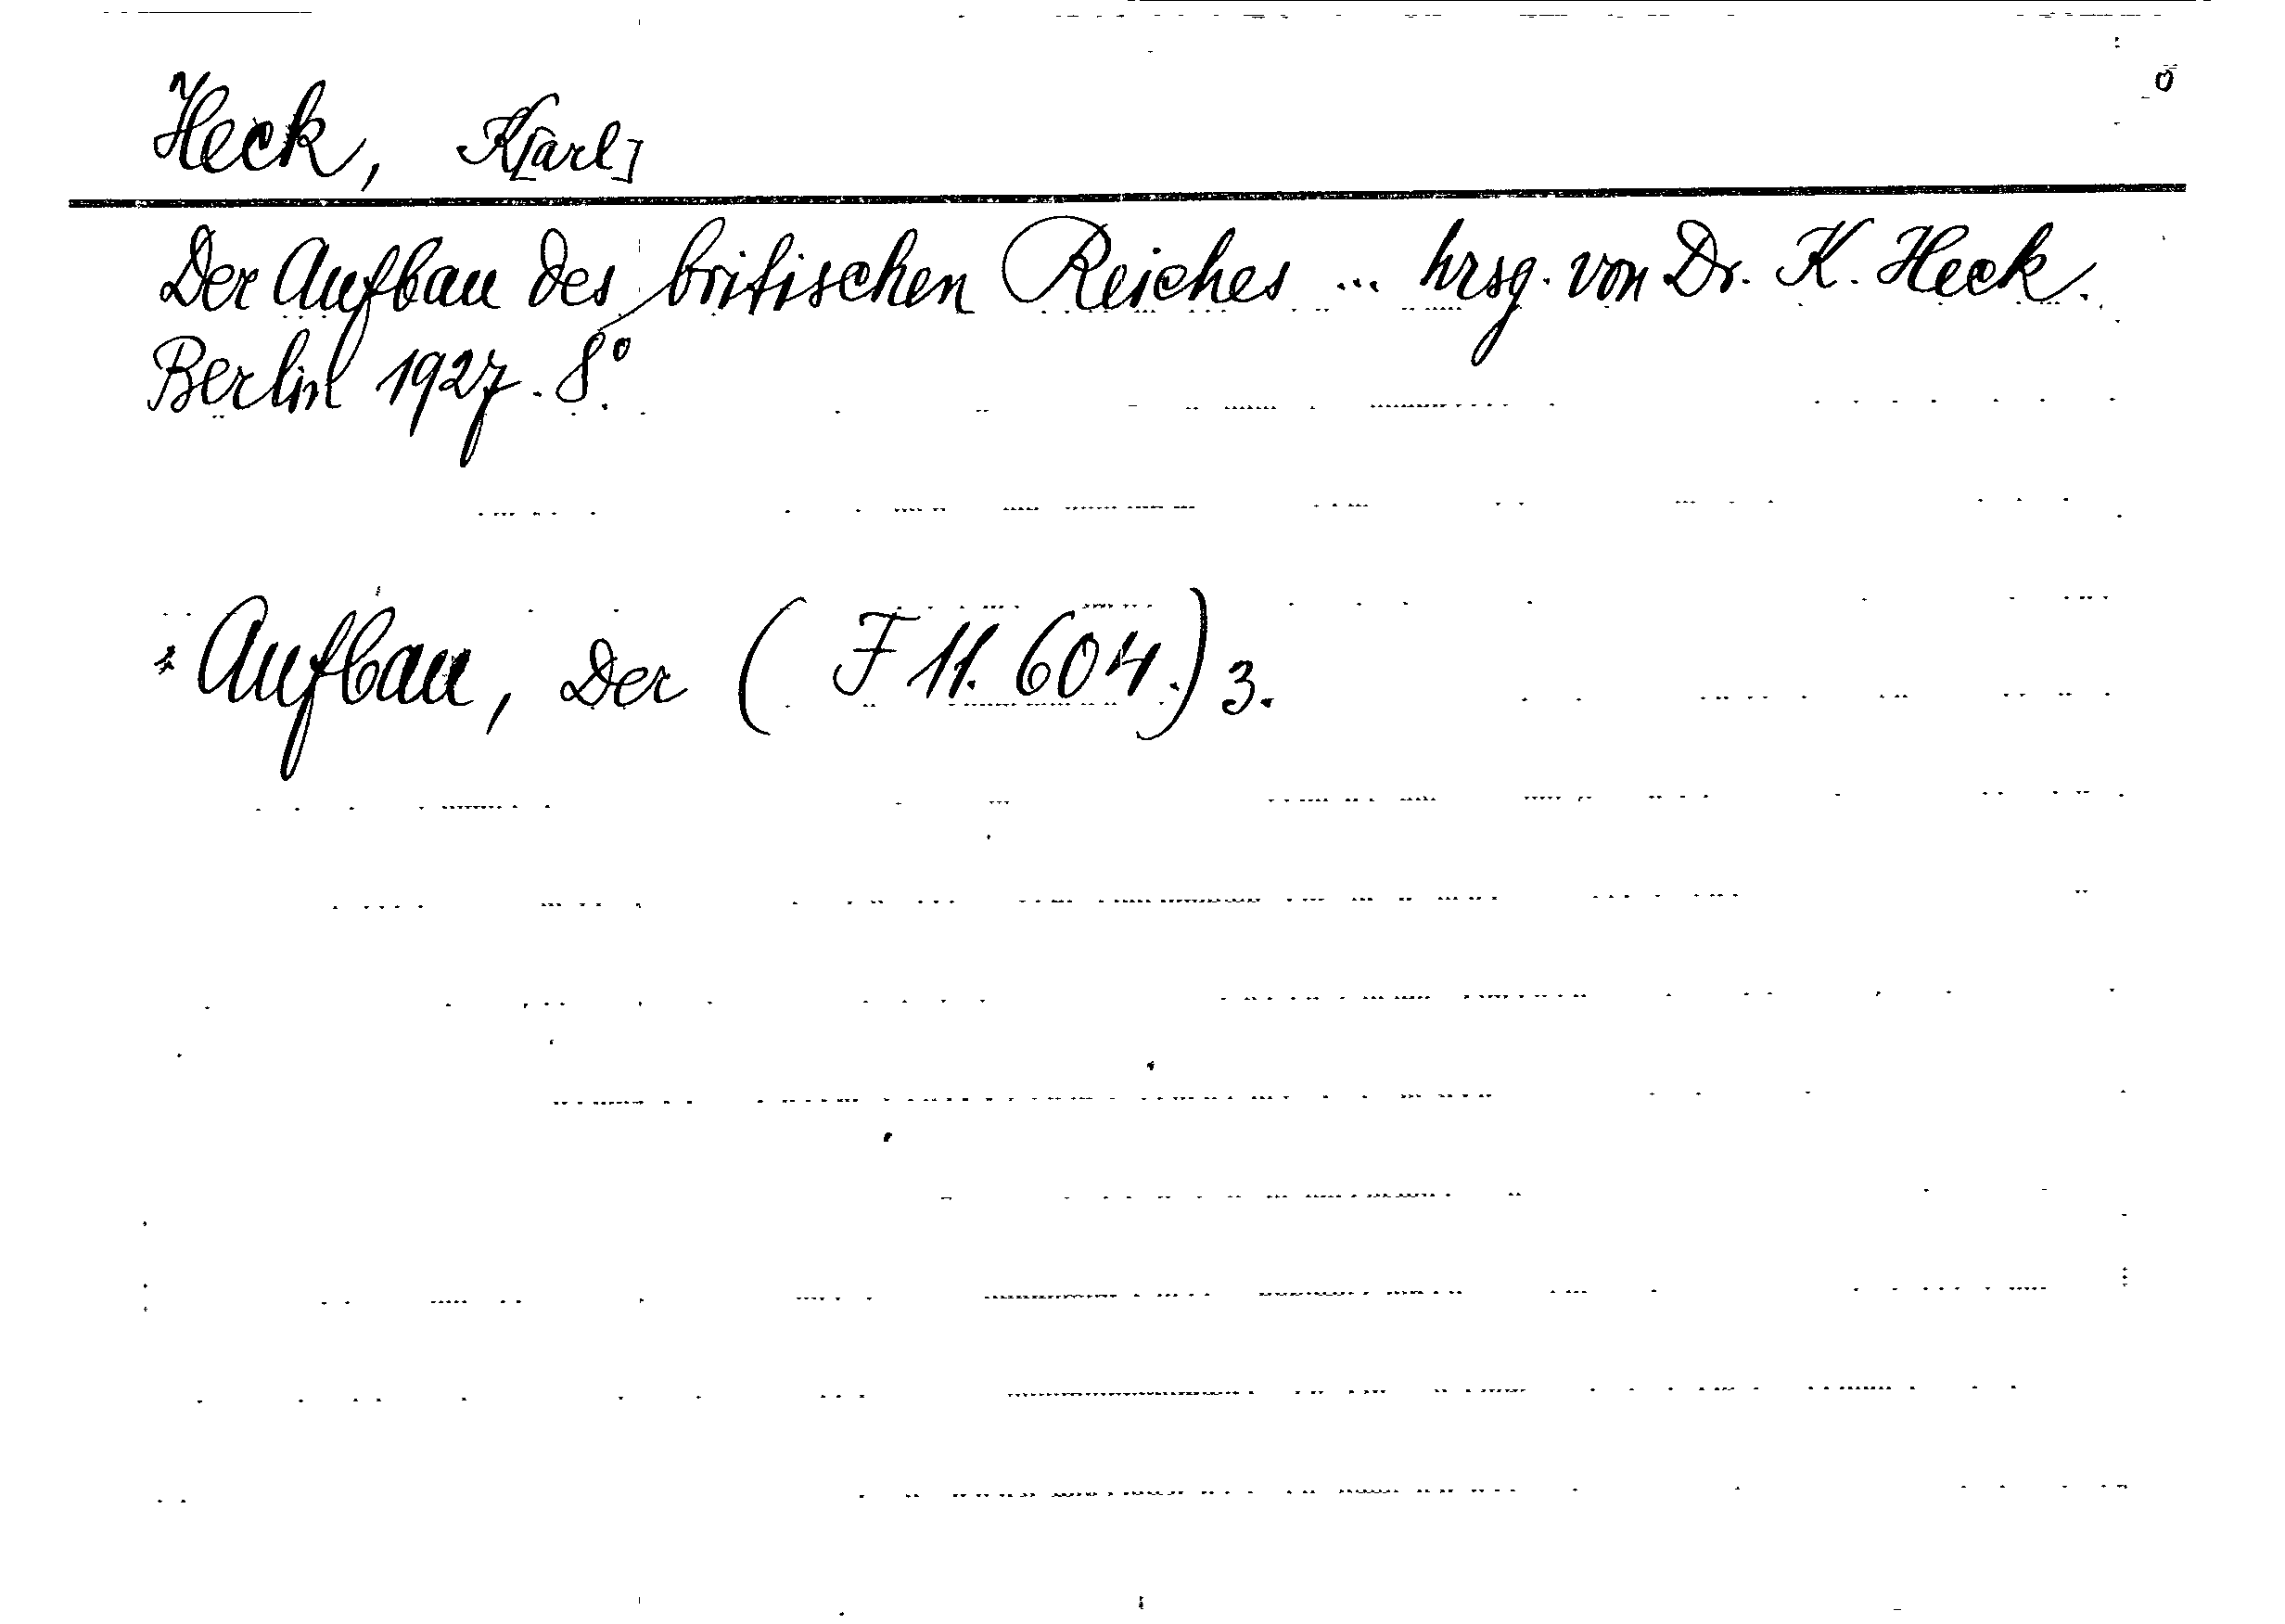 Heck, K[arl]
Der Aufbau des britischen Reiches ... hrsg. von Dr. K. Heck.
Berlin 1927. 8°.
* Aufbau, Der ( F 11.604.) 3.